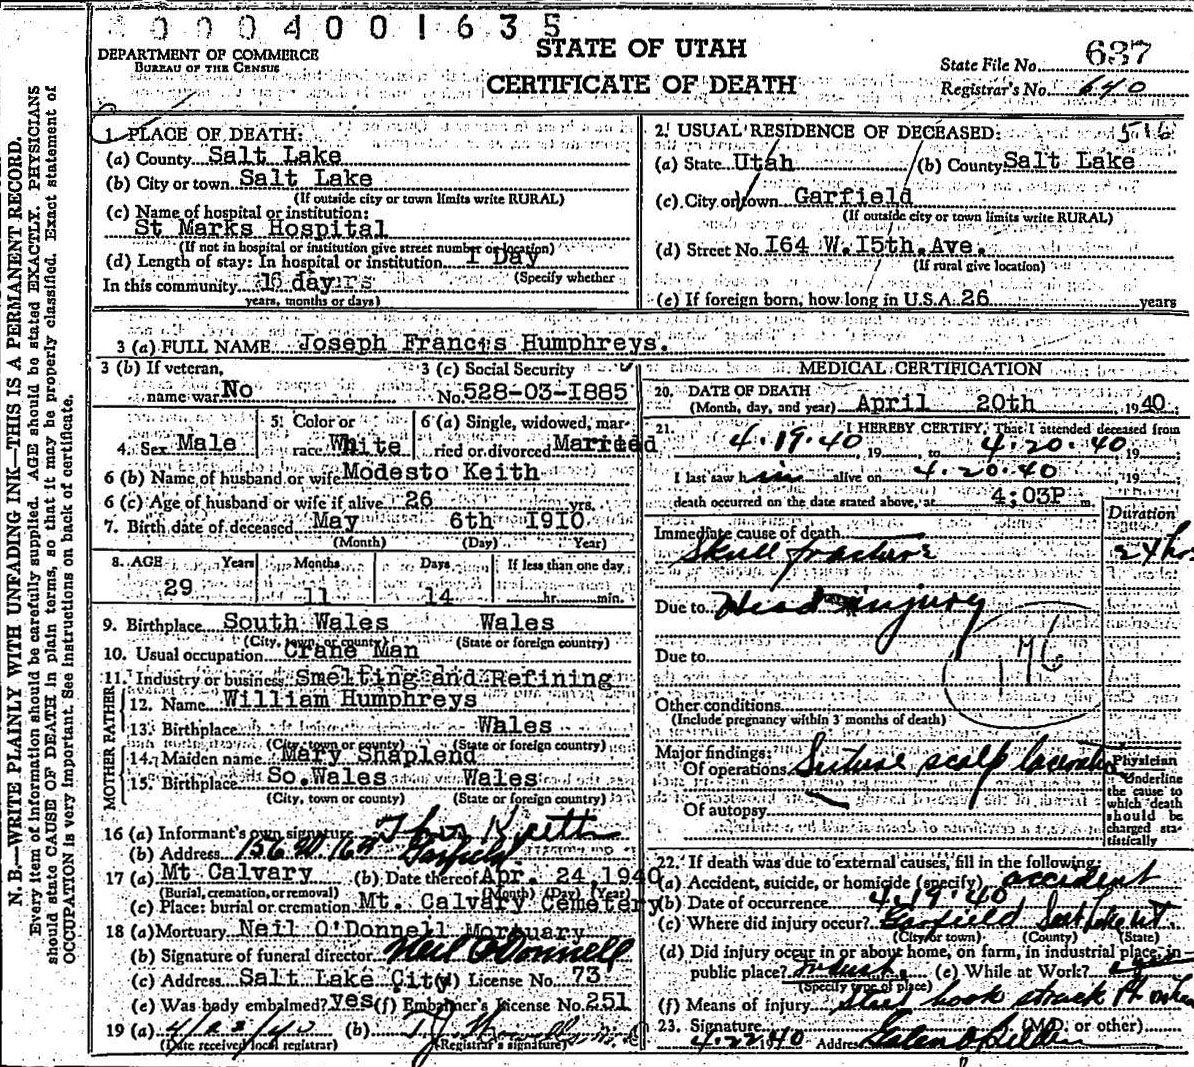 0004001635
DEPARTMENT OF COMMERCE
BUREAU OF THE CENSUS
STATE OF UTAH
CERTIFICATE OF DEATH
State File No. 637
Registrar's No. 640
N. B.—WRITE PLAINLY WITH UNFADING INK—THIS IS A PERMANENT RECORD.
Every item of information should be carefully supplied. AGE should be stated EXACTLY. PHYSICIANS
should state CAUSE OF DEATH in plain terms, so that it may be properly classified. Exact statement of
OCCUPATION is very important. See instructions on back of certificate.
1. PLACE OF DEATH:
(a) County Salt Lake
(b) City or town Salt Lake
(If outside city or town limits write RURAL)
(c) Name of hospital or institution:
St Marks Hospital
(If not in hospital or institution give street number or location)
(d) Length of stay: In hospital or institution I Day
(Specify whether
In this community 16
years, months or days)
2. USUAL RESIDENCE OF DECEASED: 516
(a) State Utah (b) County Salt Lake
(c) City or town Garfield
(If outside city or town limits write RURAL)
(d) Street No. I64 W.I5th.Ave.
(If rural give location)
(e) If foreign born, how long in U.S.A. 26 years
3 (a) FULL NAME Joseph Francis Humphreys.
3 (b) If veteran,
name war No
3 (c) Social Security
No. 528-03-I885
4. Sex Male
5. Color or
race White
6 (a) Single, widowed, mar-
ried or divorced Married
6 (b) Name of husband or wife Modesto Keith
6 (c) Age of husband or wife if alive 26 yrs.
7. Birth date of deceased May 6th I9I0
(Month) (Day) Year)
8. AGE Years Months Days If less than one day
29 11 14 hr. min.
9. Birthplace South Wales Wales
(City, town or county) (State or foreign country)
10. Usual occupation Crane Man
11. Industry or business Smelting and Refining
FATHER
12. Name William Humphreys
13. Birthplace Wales
(City, town or county) (State or foreign country)
MOTHER
14. Maiden name Mary Shaplend
15. Birthplace So.Wales Wales
(City, town or county) (State or foreign country)
16 (a) Informant's own signature Keith
(b) Address Garfield
17 (a) Mt Calvary (b) Date thereof Apr. 24 1940
(Burial, cremation, or removal) (Month) (Day) (Year)
(c) Place: burial or cremation Mt. Calvary Cemetery
18 (a) Mortuary Neil O'Donnell Mortuary
(b) Signature of funeral director Neil O'Donnell
(c) Address Salt Lake City (d) License No. 73
(e) Was body embalmed? yes (f) Embalmer's License No. 251
19 (a) 4/23/40 (b) T.J.
(Date received local registrar) (Registrar's signature)
MEDICAL CERTIFICATION
20. DATE OF DEATH
(Month, day, and year) April 20th 1940
21. I HEREBY CERTIFY, That I attended deceased from
4.19.40, 19 to 4.20.40 19 ;
I last saw him alive on 4.20.40, 19 ;
death occurred on the date stated above, at 4:03P m.
Duration
Immediate cause of death
Skull fracture 24 hrs
Due to Head injury
Due to
176
Other conditions
(Include pregnancy within 3 months of death)
Major findings:
Of operations Suture scalp laceration
Of autopsy
Physician
Underline
the cause to
which death
should be
charged sta-
tistically
22. If death was due to external causes, fill in the following:
(a) Accident, suicide, or homicide (specify) accident
(b) Date of occurrence 4.19.40
(c) Where did injury occur? Garfield Salt Lake Ut.
(City or town) (County) (State)
(d) Did injury occur in or about home, on farm, in industrial place, in
public place? indust. (e) While at Work?
(Specify type of place)
(f) Means of injury Steel hook struck Pt.
23. Signature (M.D. or other)
4.22.1940 Address